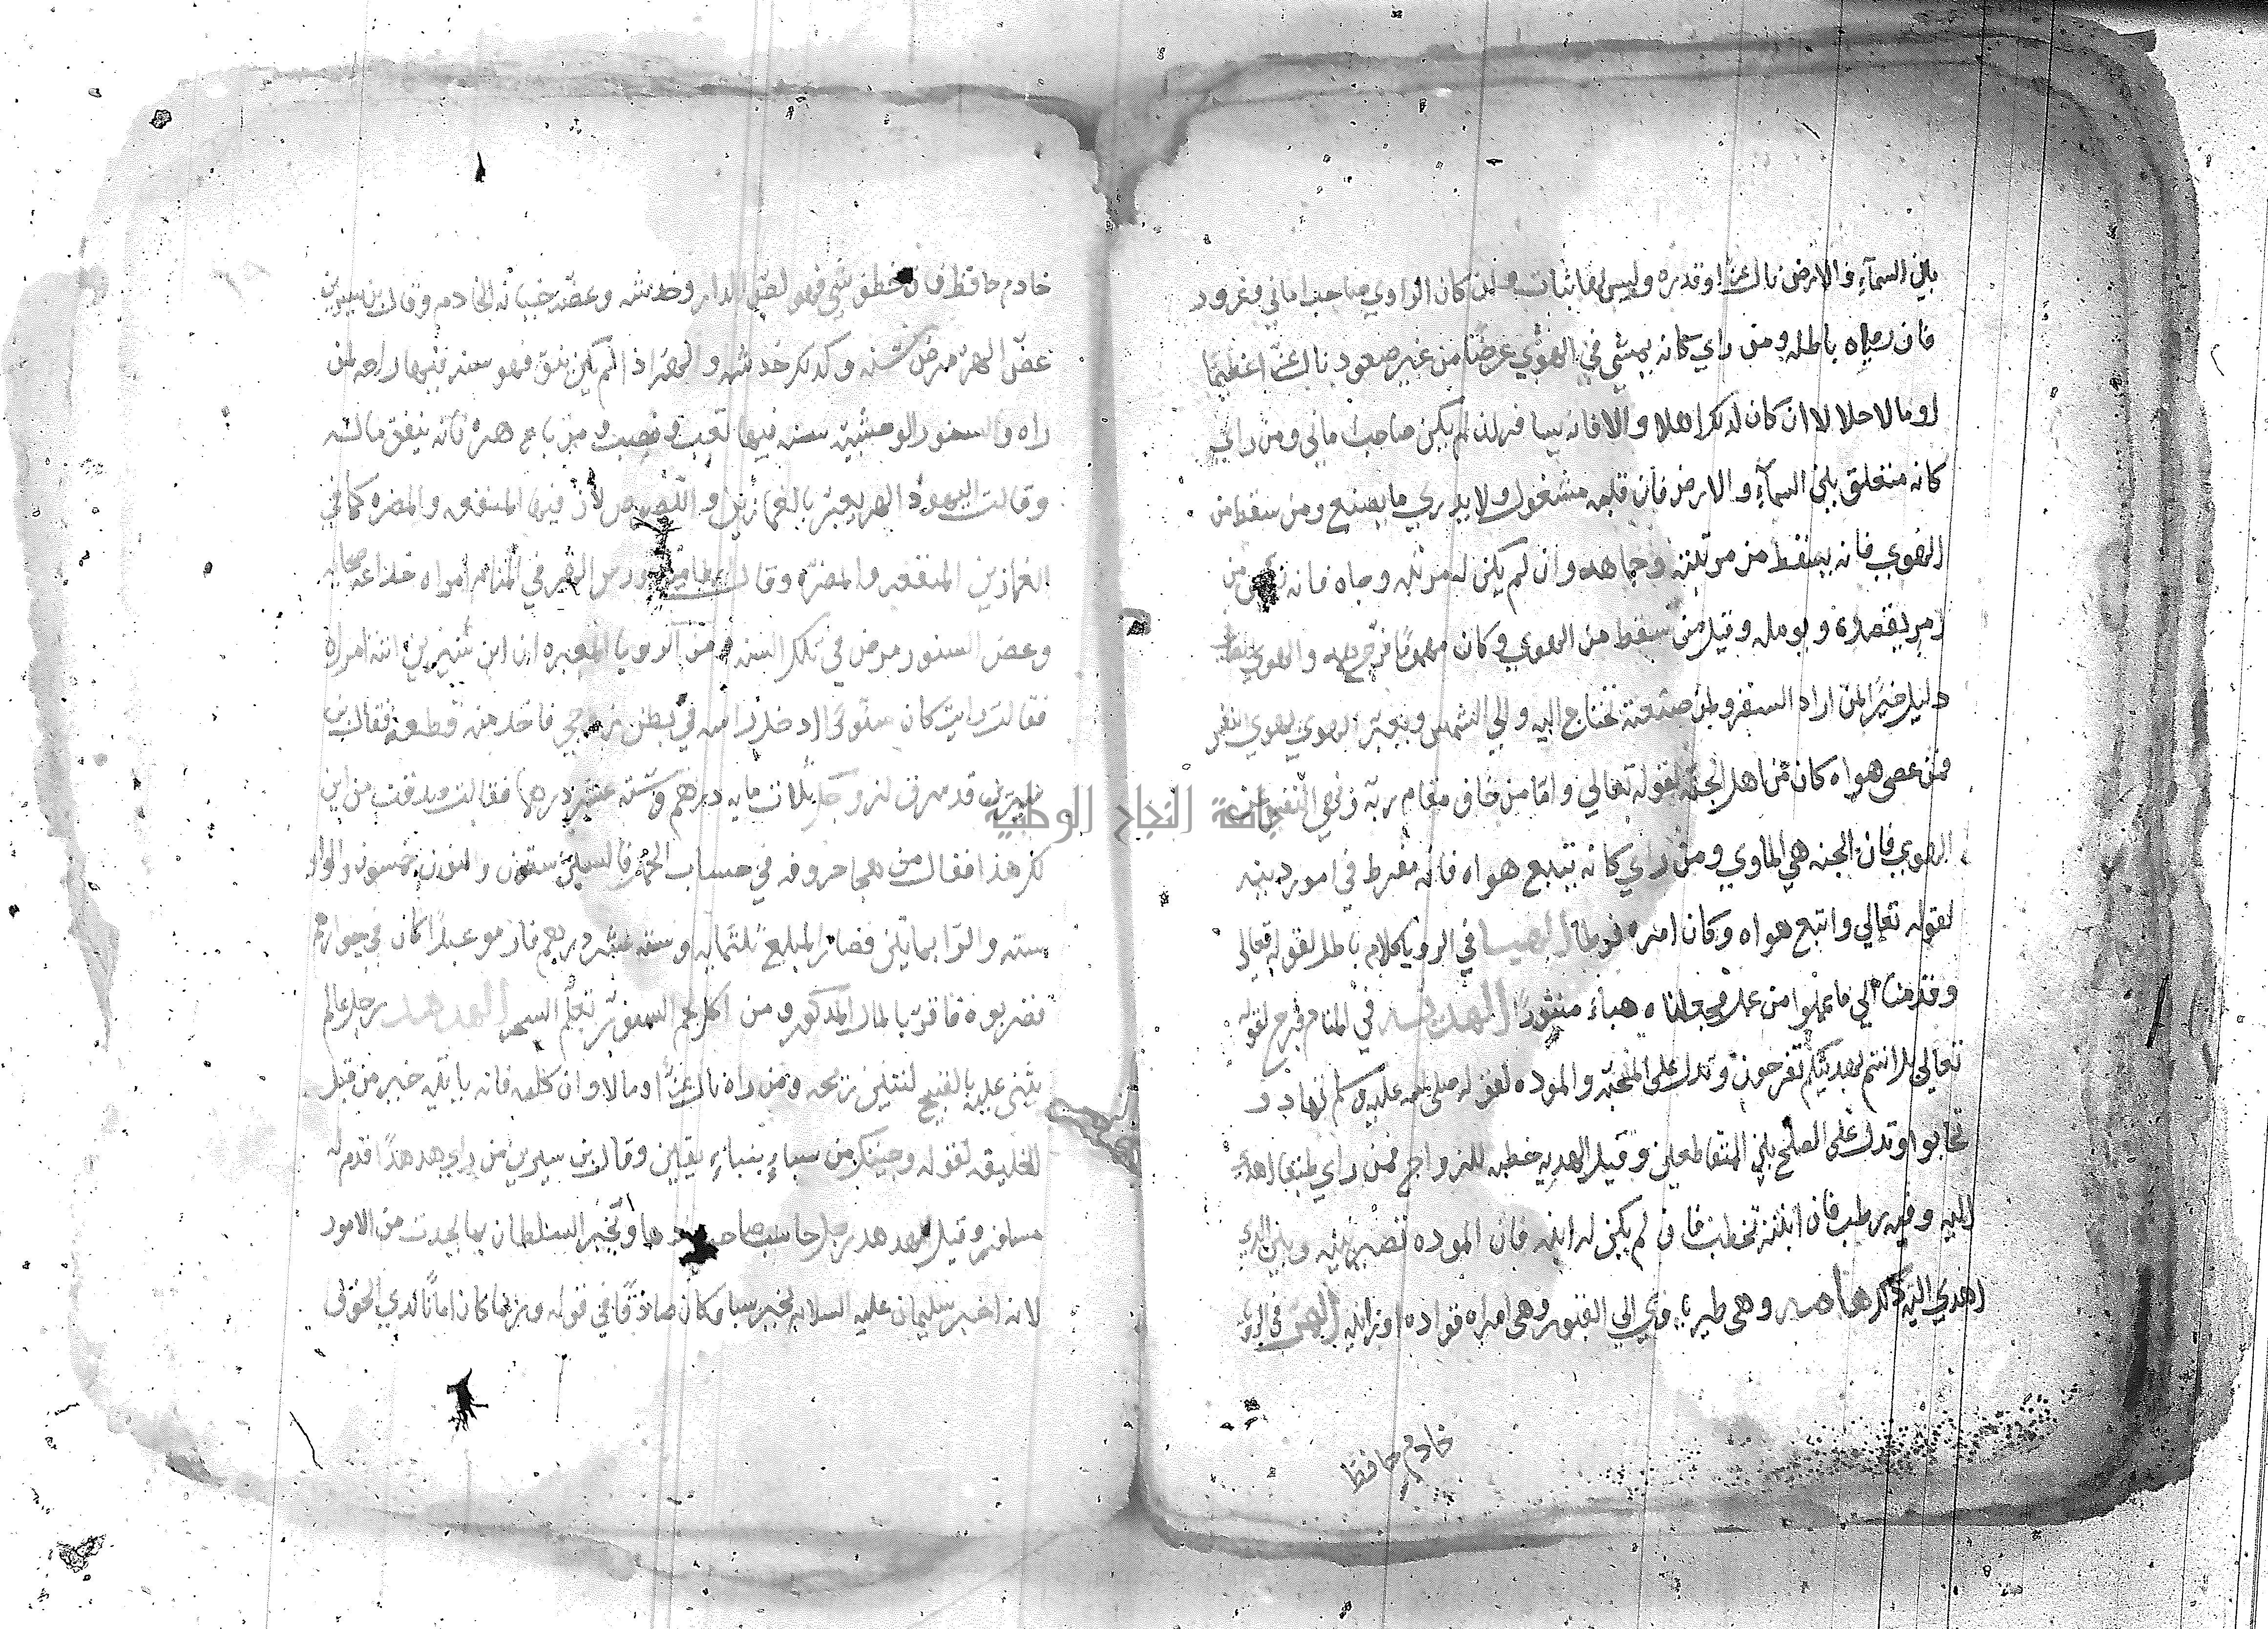 بين السمآء والارض نال عزا وقدره وليس لها ثبات وان كان الراوي صاحب اماني وغرور
فان روياه باطله ومن راي كانه يمشي في الهوي عرضا من غير صعود نال عزا عظيما
او مالا حلالا ان كان لذلك اهلا والا فانه يسافر ان لم يكن صاحب اماني ومن راي
كانه متعلق بين السمآء والارض فان قلبه مشغول ولا يدري ما يصنع ومن سقط من
الهوي فانه يسقط من مرتبته وجاهه وان لم يكن له مرتبه وجاه فانه من
امر يقصده ويومله وقيل من سقط من الهوي وكان مهموما فرج والهوي
دليل خير لمن اراد السفر ولمن صنعته تحتاج اليه والي الشمس ويعبر الهوي بهوي النفس
فمن عصي هواه كان من اهل الجنة لقوله تعالي واما من خاف مقام ربه ونهي النفس عن
الهوي فان الجنه هي الماوي ومن راي كانه يتبع هواه فانه مفرط في امور دينه
لقوله تعالي واتبع هواه وكان امره فرطا الهبا في الرويا كلام باطل لقوله تعالي
وقدمنا الي ما عملوا من عمل فجعلناه هباء منثورا الهديه في المنام فرح لقوله
تعالي بل انتم بهديتكم تفرحون وتدل علي المحبه والموده لقوله صلي الله عليه وسلم تهادوا
تحابوا وتدل علي الصلح بين المتقاطعين وقيل الهديه خطبه للزواج فمن راي طبقا اهدي
اليه وفيه رطب فان ابنته تخطب فان لم يكن له ابنه فان الموده تصير بينه وبين الذي
اهدي اليه ذلك هامه وهي طير ياوي الي القبور وهي امراه قواده او زانيه الهر في الرويا
خادم حافظ
خادم حافظ فان خطف شي فهو لص الدار وخدشه وعضه خيانه الخادم وقال بن سيرين
عض الهر مرض سنه وكذلك خدشه والهره اذا لم يكن فهو سنه فيها راحه لمن
راه والسنور الوحشيه سنه فيها تعب ونصب ومن باع هره فانه ينفق ماله
وقالت اليهود الهر يعبر بالغمازين واللصوص لان فيها المنفعه والمضره كما في
الغمازين المنفعه والمضره وقال الهر في المنام امراه خداعه صخابه
وعض السنور مرض في تلك السنه ومن الرويا المعبره ان ابن سيرين اتته امراة
فقالت رايت كان سنورا ادخل راسه في بطن زوجي فاخذ منه قطعة فقال بن
سيرين قد سرق لزوجك ثلاث مايه درهم وستة عشر درهما فقالت صدقت من اين
لك هذا فقال من هجا حروفه في حساب الجمل فالسين ستون والنون خمسون والواو
سته والرا بمايتين فصار المبلغ ثلثمايه وسته عشر درهم فاتهموا عبدا كان في جوارهم
فضربوه فاقر بالمال المذكور ومن اكل لحم السنور تعلم السحر الهدهد رجل عالم
يثني عليه بالقبيح لنتن ريحه ومن راه نال عزا او مالا وان كلمه فانه ياتيه خبر من قبل
الخليفه لقوله وجيتك من سباء بنباء يقين وقال بن سيرين من راي هدهدا قدم له
مسافر وقيل الهدهد رجل حاسب صاحب دها ويخبر السلطان بما يحدث من الامور
لانه اخبر سليمان عليه السلام بخبر سبا وكان صادقا في قوله وربما كان امانا لذي الخوف
جامعة النجاح الوطنية